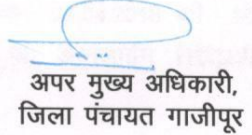 अपर मुख्य अधिकारी,
जिला पंचायत गाजीपुर